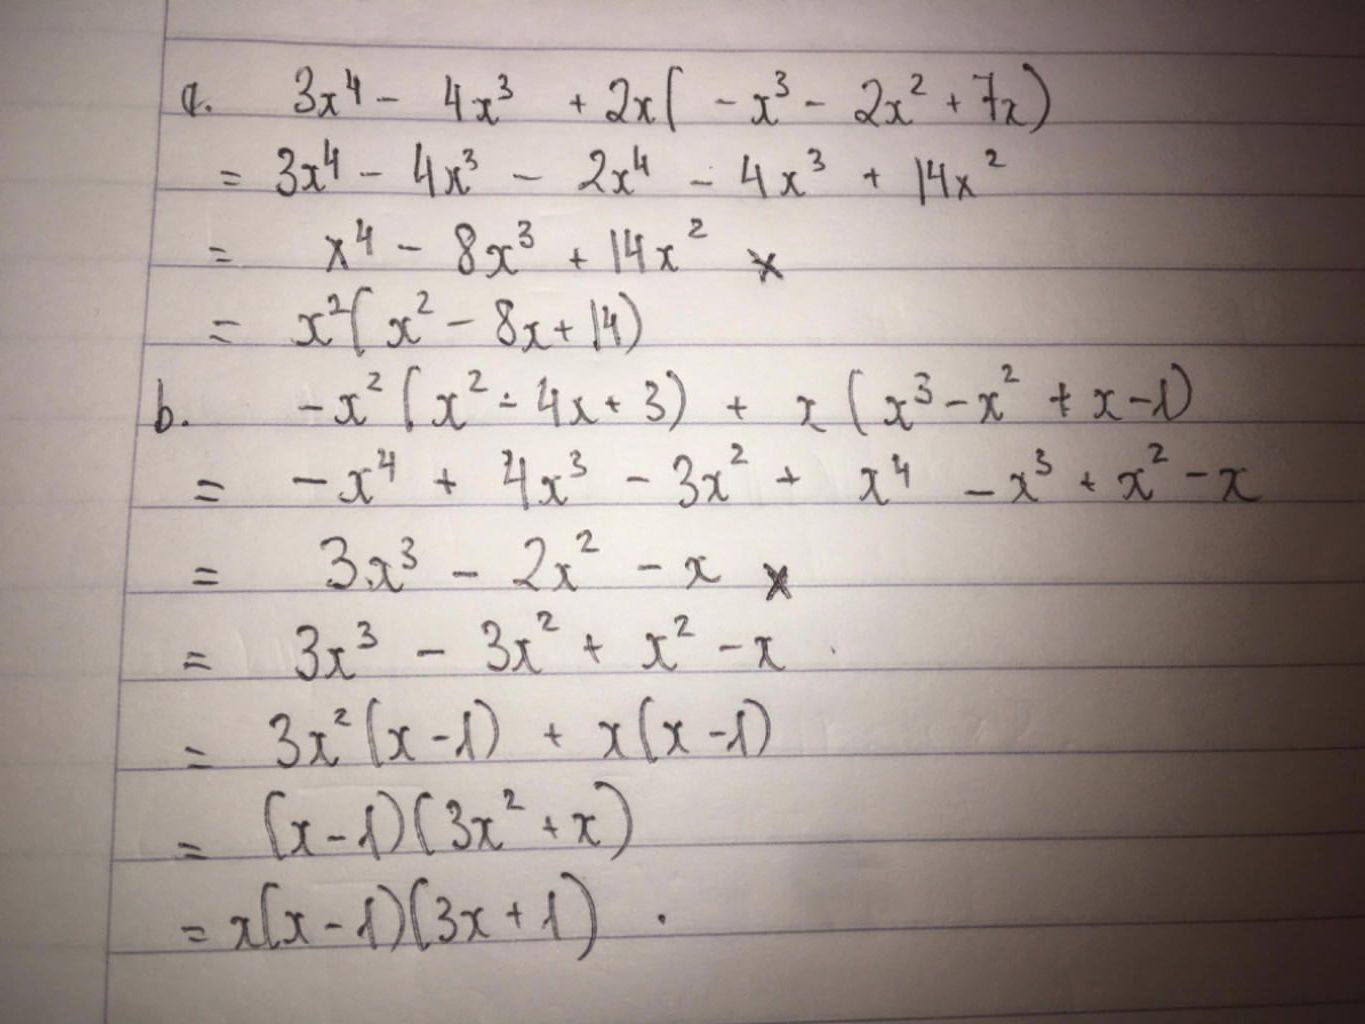 a. 3x⁴ - 4x³ + 2x( - x³ - 2x² + 7x)
= 3x⁴ - 4x³ - 2x⁴ - 4x³ + 14x²
= x⁴ - 8x³ + 14x² x
= x²( x² - 8x + 14)
b. -x² ( x² - 4x + 3) + x ( x³ - x² + x - 1)
= -x⁴ + 4x³ - 3x² + x⁴ - x³ + x² - x
= 3x³ - 2x² - x x
= 3x³ - 3x² + x² - x
= 3x² (x - 1) + x(x - 1)
= (x - 1)(3x² + x)
= x(x - 1)(3x + 1) .